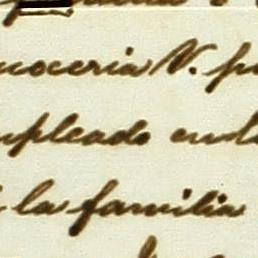 noceria V. pu
mpleado enla
la familia